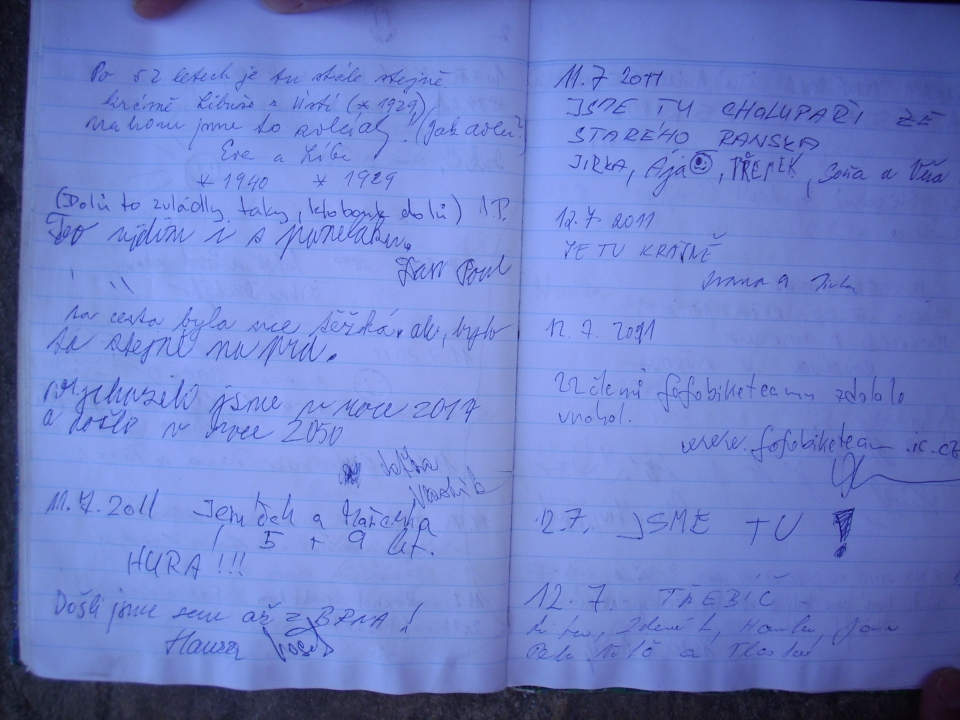 Po 52 letech je tu stále stejně
krásně Libuše z Ústí (* 1929)
jsme to zvládly (jak dolů?)
Eva a Liba
* 1940 * 1929
(Dolů to zvládly taky, klobouk dolů) J.P.
Teo vyjdim i s
Jan
na cesta byla sice těžká. ale, bylo
to stejně na prd.
vycházeli jsme v roce 2017
a došlo v roce 2050
Vlastík
11.7.2011 Jeníček a Mařenka
5 + 9 let.
HURA!!!
Došli jsme sem až z BRNA!
Hanza
11.7 2011
JSME TU CHOLUPAŘI ZE
STARÉHO RANSKA
JIRKA, Ája, PŘEMEK, Soňa a Věra
12.7 2011
JE TU KRÁSNĚ
Ivana a Jirka
12.7.2011
22členů fofobiketeamu zdolalo
vrchol.
www.fofobiketeam.ic.cz
12.7. JSME TU !
12.7 TŘEBÍČ -
Zdeněk, Hanka, Jana
Miloš a